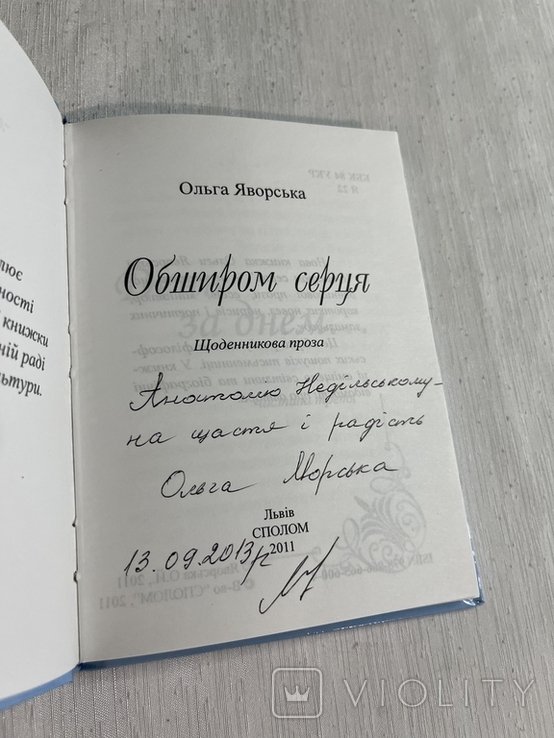 лює
ності
книжки
ній раді
ьтури.
Ольга Яворська
Обширом серця
Щоденникова проза
Анатолію Недільському -
на щастя і радість
Ольга Яворська
Львів
СПОЛОМ
2011
13.09.2013р
VIOLITY